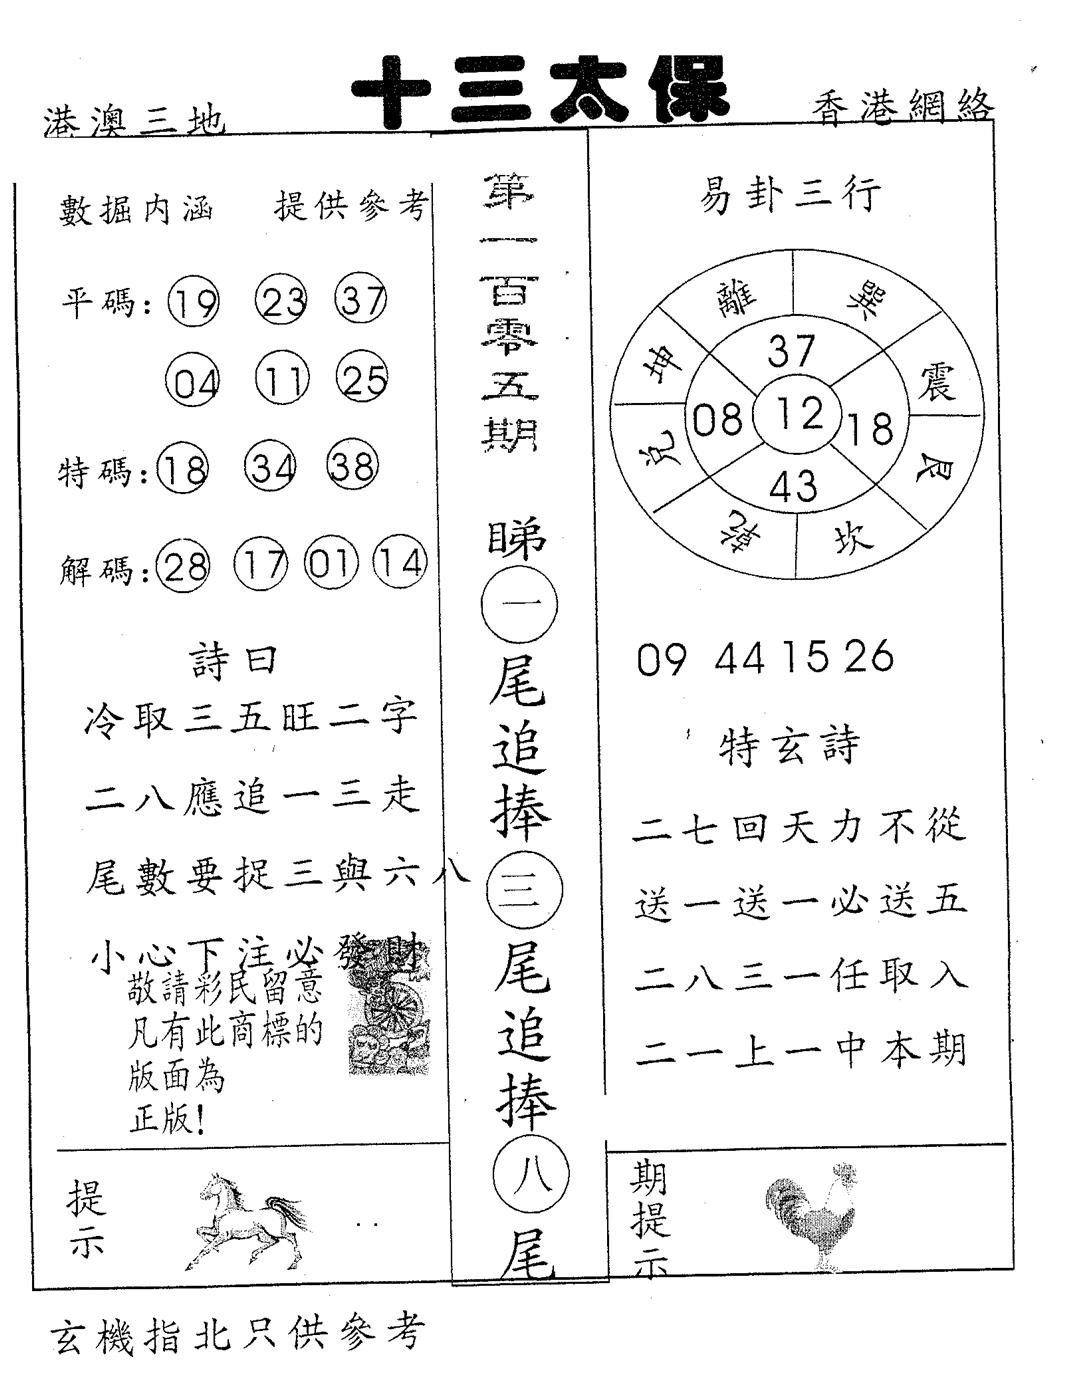 十三太保
港澳三地
香港網絡
數掘内涵 提供參考
平碼: 19 23 37
04 11 25
特碼: 18 34 38
解碼: 28 17 01 14
詩曰
冷取三五旺二字
二八應追一三走
尾數要捉三與六八
小心下注必發財
敬請彩民留意
凡有此商標的
版面為
正版!
提示
第一百零五期
睇一尾追捧三尾追捧八尾
易卦三行
離 巽
坤 震
兌 艮
乾 坎
37
08 12 18
43
09 44 15 26
特玄詩
二七回天力不從
送一送一必送五
二八三一任取入
二一上一中本期
期提示
玄機指北只供參考